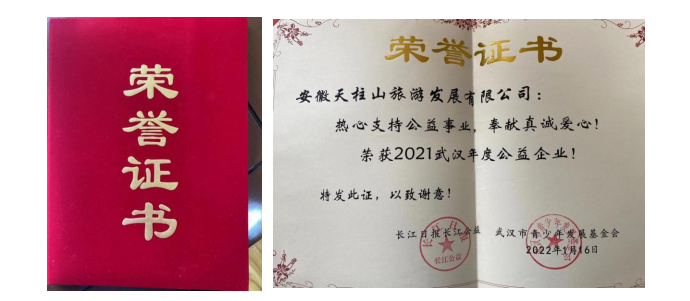 荣誉证书
荣誉证书
安徽天柱山旅游发展有限公司：
热心支持公益事业，奉献真诚爱心！
荣获2021武汉年度公益企业！
特发此证，以致谢意！
长江日报长江公益 武汉市青少年发展基金会
2022年1月16日
长江公益